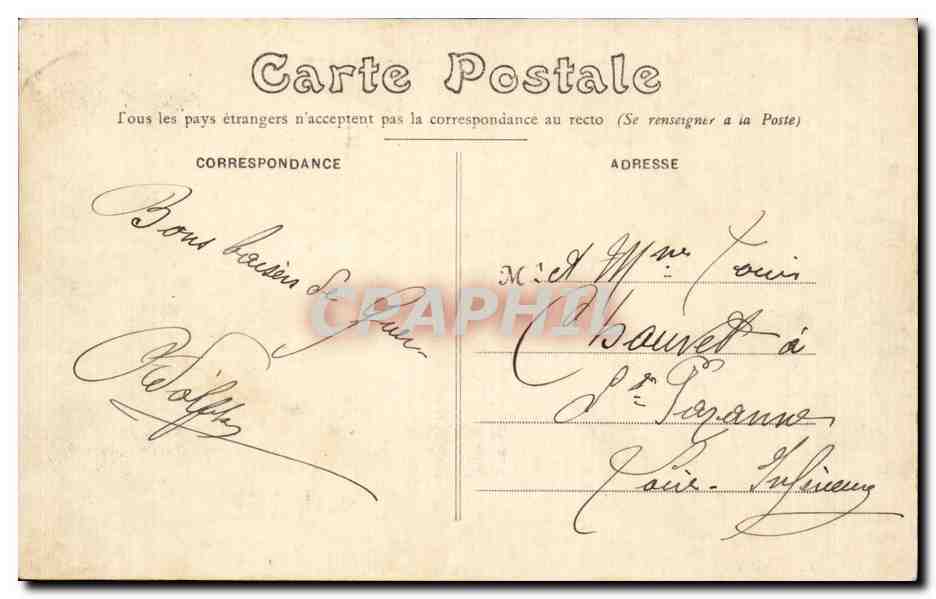 Carte Postale
Tous les pays étrangers n'acceptent pas la correspondance au recto (Se renseigner a la Poste)
CORRESPONDANCE
ADRESSE
Bons baisers de Guer
Adolphe
M. et Mme Louis
Chauvet à
Ste Pazanne
Loire-Inférieure
CPAPHIL